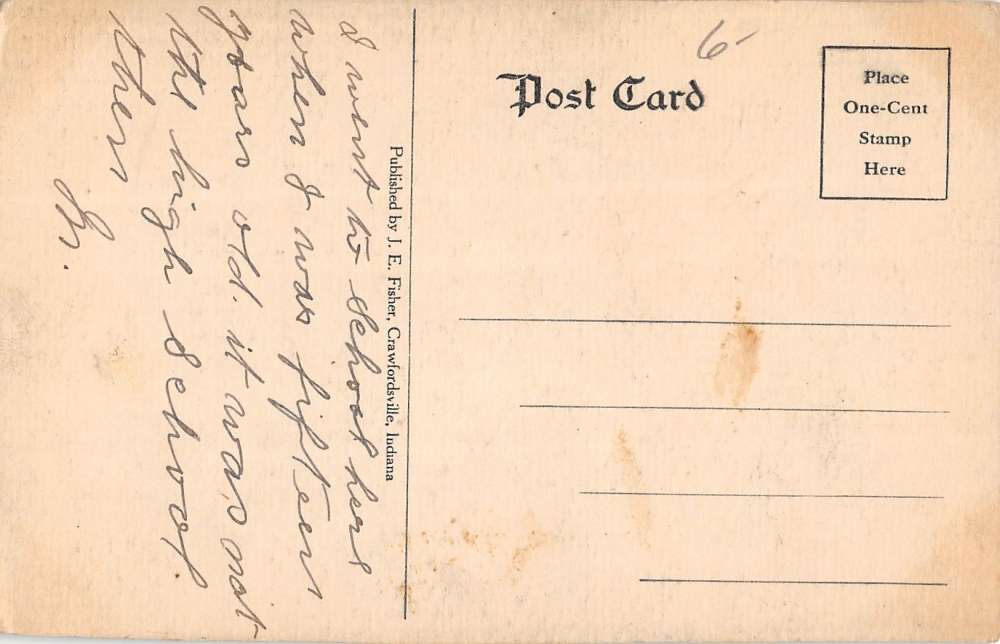 I went to school here
when I was fifteen
years old. it was not
the high school
then
Published by J. E. Fisher, Crawfordsville, Indiana
6-
Post Card
Place
One-Cent
Stamp
Here